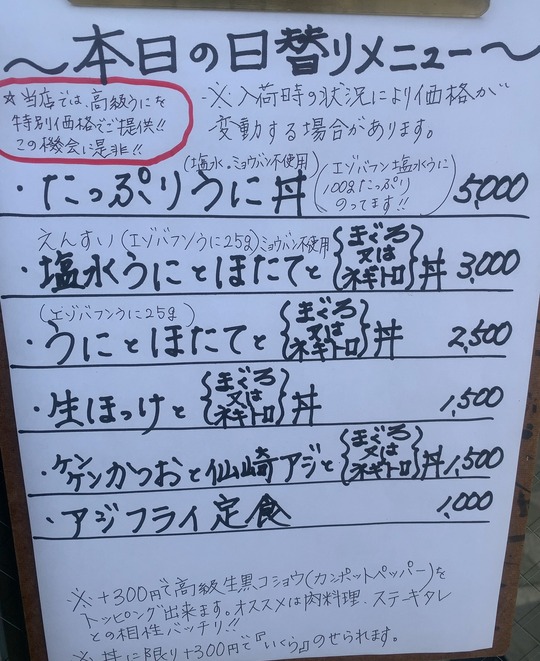 ～本日の日替リメニュー～
☆当店では、高級うにを
特別価格でご提供!!
この機会に是非!!
※入荷時の状況により価格が
変動する場合があります。
(塩水・ミョウバン不使用)
・たっぷりうに丼 (エゾバフン塩水うに 100gたっぷり のってます!!) 5,000
えんすい(エゾバフンうに25g)ミョウバン不使用
・塩水うにとほたてと{まぐろ 又は ネギトロ}丼 3,000
(エゾバフンうに25g)
・うにとほたてと{まぐろ 又は ネギトロ}丼 2,500
・生ほっけと{まぐろ 又は ネギトロ}丼 1,500
・ケンケンかつおと仙崎アジと{まぐろ 又は ネギトロ}丼 1,500
・アジフライ定食 1,000
※+300円で高級生黒コショウ(カンポットペッパー)を
トッピング出来ます。オススメは肉料理、ステキタレ
との相性バッチリ!!
※丼に限り+300円で『いくら』のせられます。